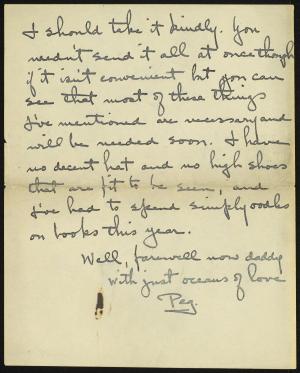 I should take it kindly. You
needn't send it all at once though
if it isn't convenient but you can
see that most of these things
I've mentioned are necessary and
will be needed soon. I have
no decent hat and no high shoes
that are fit to be seen, and
I've had to spend simply oodles
on books this year.
Well, farewell now daddy
with just oceans of love
Peg.